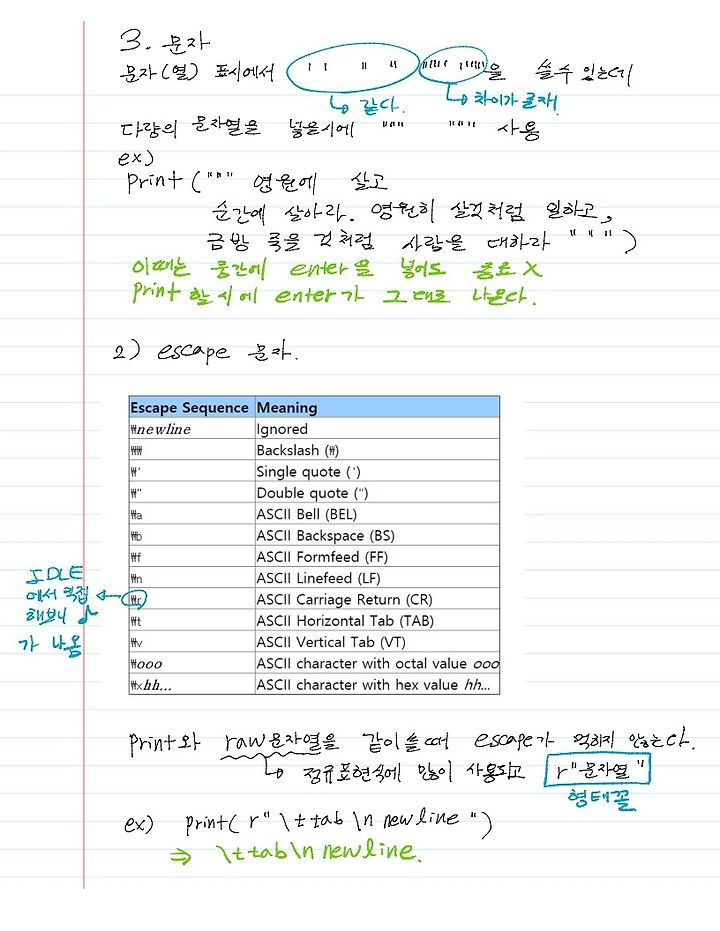 3. 문자
문자(열) 표시에서 ' ' " " """ """을 쓸수 있는데
↳ 같다. ↳ 차이가 존재!
다량의 문자열을 넣을시에 """ """ 사용
ex)
print (""" 영원에 살고
순간에 살아라. 영원히 살것처럼 일하고,
금방 죽을 것처럼 사람을 대하라 """)
이때는 중간에 enter을 넣어도 종료 X
print 할시에 enter가 그대로 나온다.
2) escape 문자.
Escape Sequence Meaning
₩newline Ignored
₩₩ Backslash (₩)
₩' Single quote (')
₩" Double quote (")
₩a ASCII Bell (BEL)
₩b ASCII Backspace (BS)
₩f ASCII Formfeed (FF)
₩n ASCII Linefeed (LF)
₩r ASCII Carriage Return (CR)
₩t ASCII Horizontal Tab (TAB)
₩v ASCII Vertical Tab (VT)
₩ooo ASCII character with octal value ooo
₩xhh... ASCII character with hex value hh...
IDLE
에서 직접
해보니 ♪
가 나옴
print와 raw문자열을 같이쓸때 escape가 먹히지 않는다.
↳ 정규표현식에 많이 사용되고 r"문자열"
형태꼴
ex) print( r" \t tab \n newline ")
⇒ \t tab \n newline.